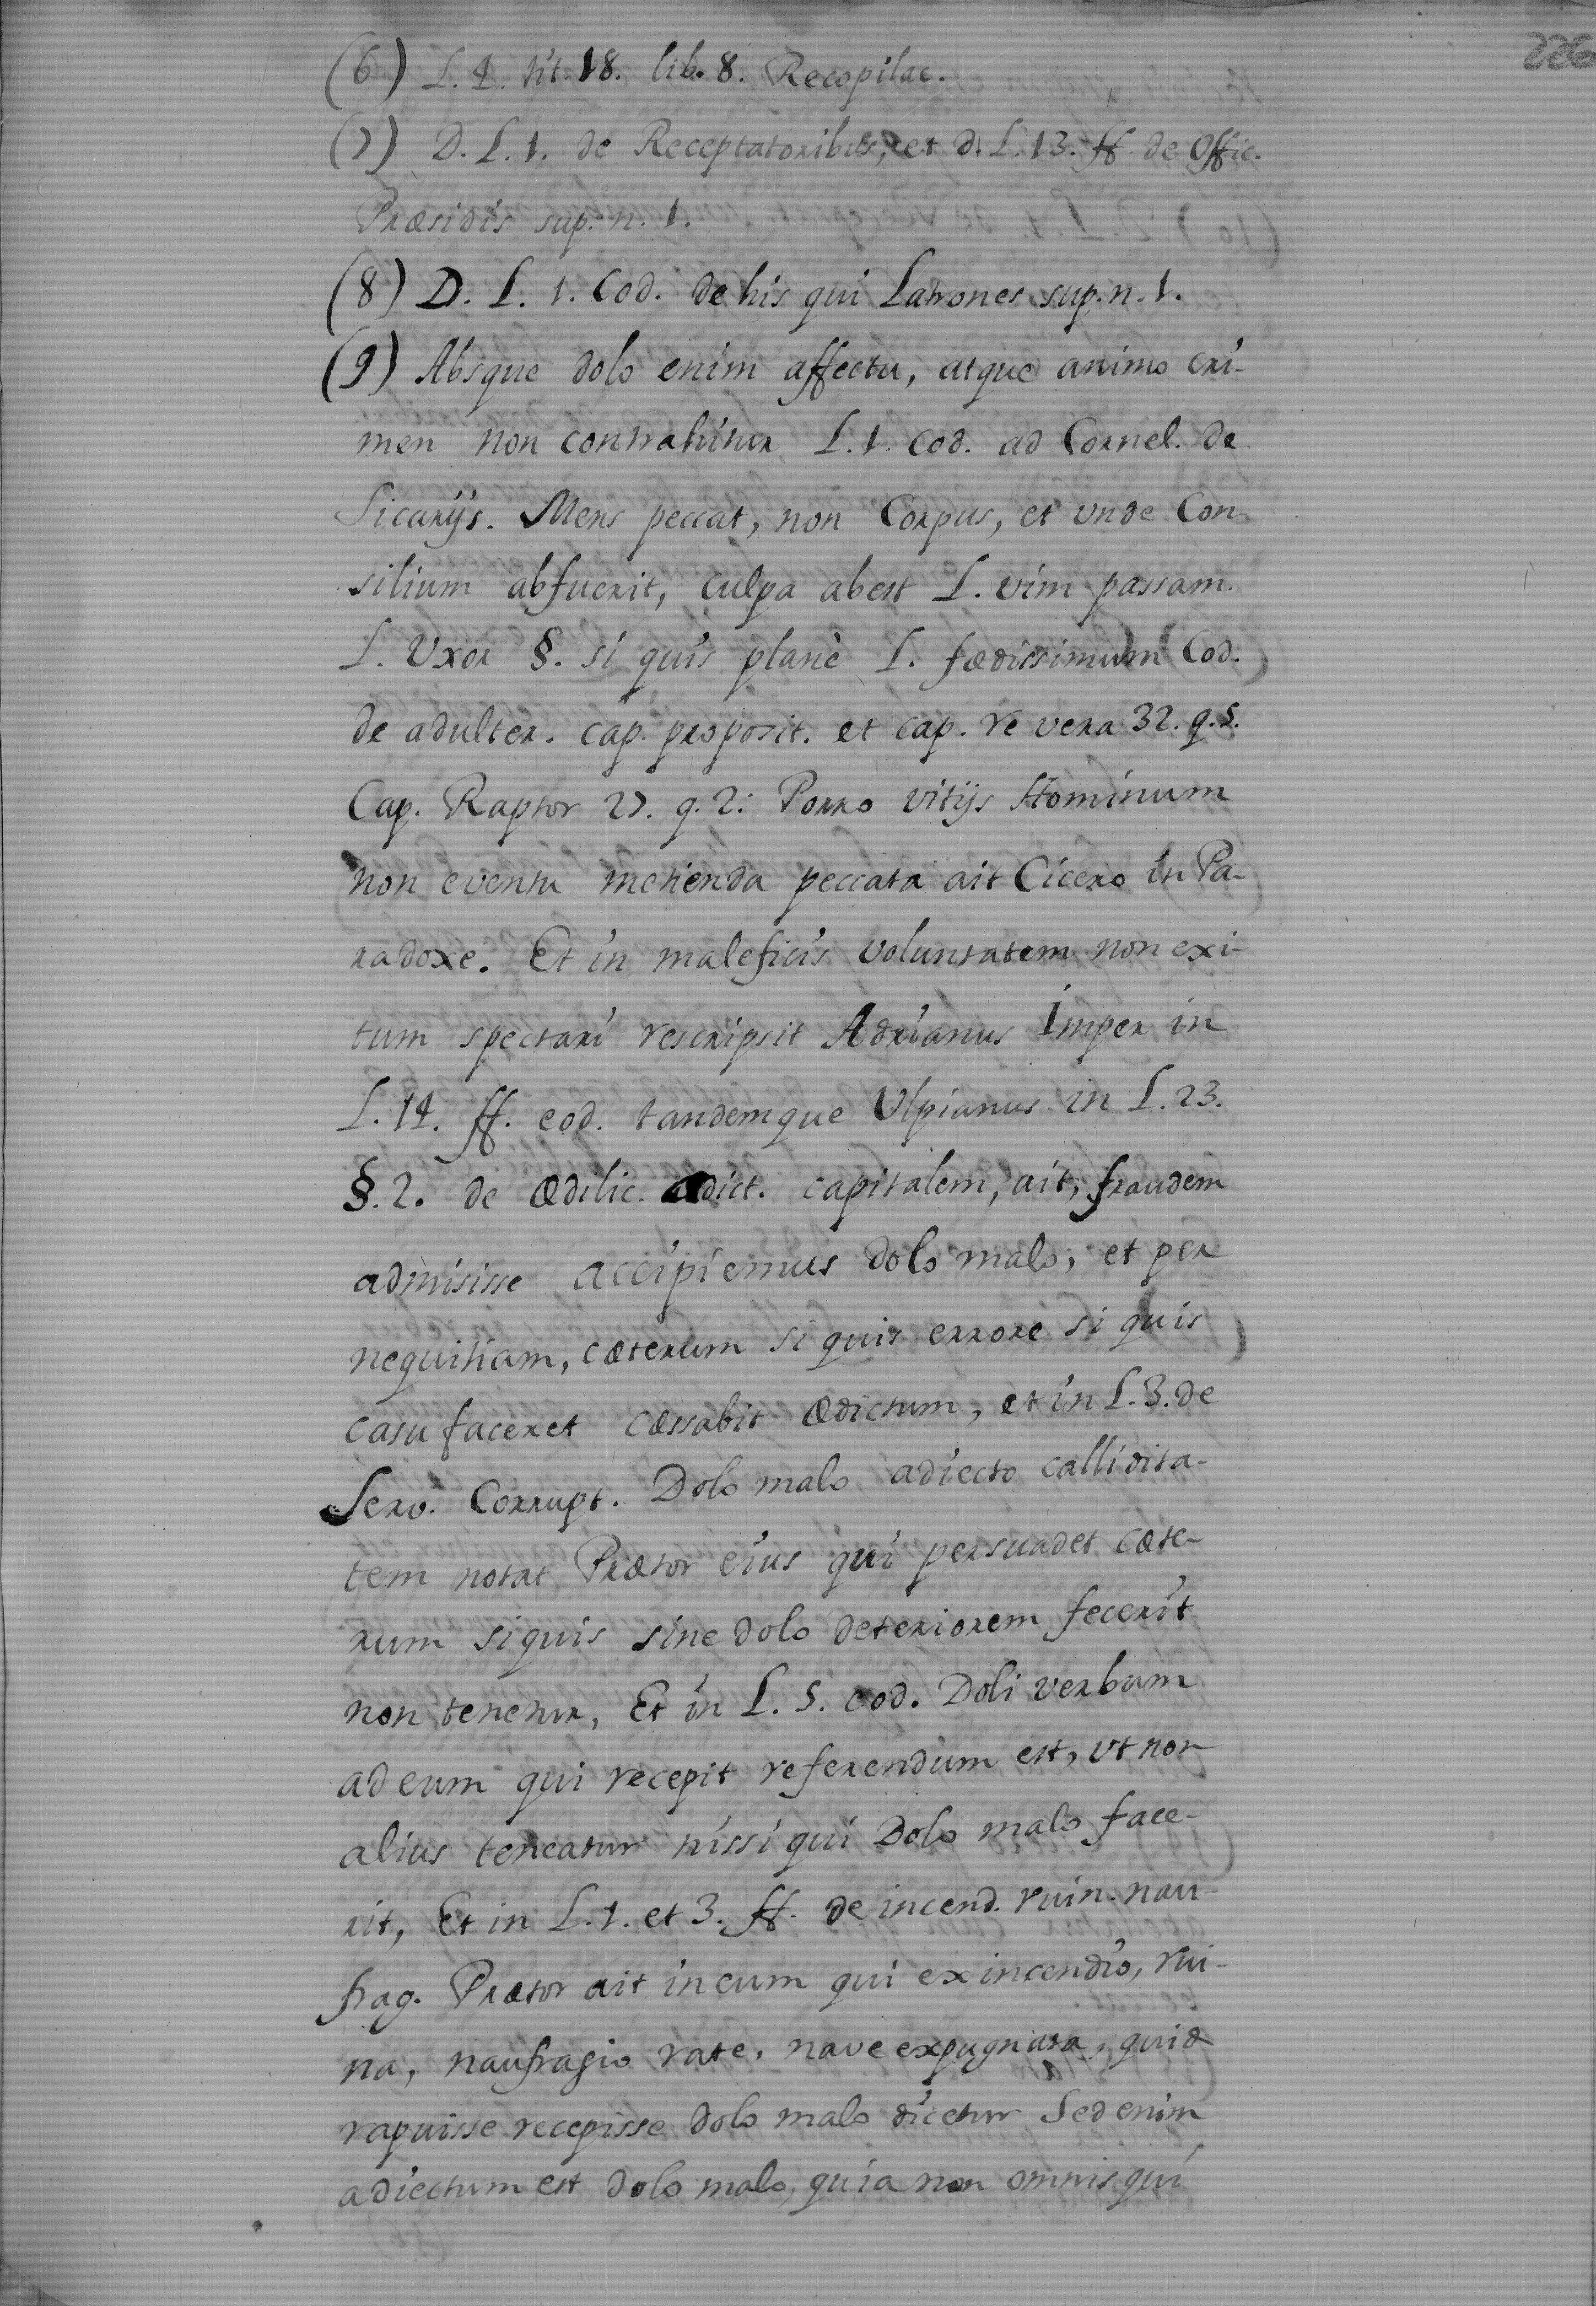 226
(6) L. 4. tit. 18. lib. 8. Recopilac.
(7) D. L. 1. de Receptatoribus, et d. L. 13. ff. de Offic.
Præsidis sup. n. 1.
(8) D. L. 1. Cod. de his qui Latrones sup. n. 1.
(9) Absque dolo enim affectu, atque animo cri-
men non contrahitur L. 1. Cod. ad Cornel. de
Sicarijs. Mens peccat, non Corpus, et unde Con-
silium abfuerit, culpa abest L. vim passam.
L. Uxor §. si quis planè L. fædissimum Cod.
de adulter. cap. proposit. et cap. re vera 32. q. 5.
Cap. Raptor 27. q. 2: Porro vitijs Hominum
non eventu metienda peccata ait Cicero in Pa-
radoxe. Et in maleficis voluntatem non exi-
tum spectari rescripsit Adrianus Imper in
L. 14. ff. eod. tandemque Ulpianus in L. 23.
§. 2. de ædilic. ædict. capitalem, ait, fraudem
admisisse accipiemus dolo malo, et per
nequitiam, cæterum si quis errore si quis
casu faceret cæssabit ædictum, et in L. 3. de
Serv. Corrupt. Dolo malo adiecto callidita-
tem notat Prætor eius qui persuadet cæte-
rum siquis sine dolo deteriorem fecerit
non tenetur, Et in L. 5. eod. Doli verbum
ad eum qui recepit referendum est, vt non
alius teneatur nissi qui Dolo malo fece-
rit, Et in L. 1. et 3. ff. de incend. ruin. nau-
frag. Prætor ait in eum qui ex incendio, rui-
na, naufragio rate, nave expugnata, quid
rapuisse recepisse dolo malo dicetur Sed enim
adiectum est dolo malo, quia non omnis qui